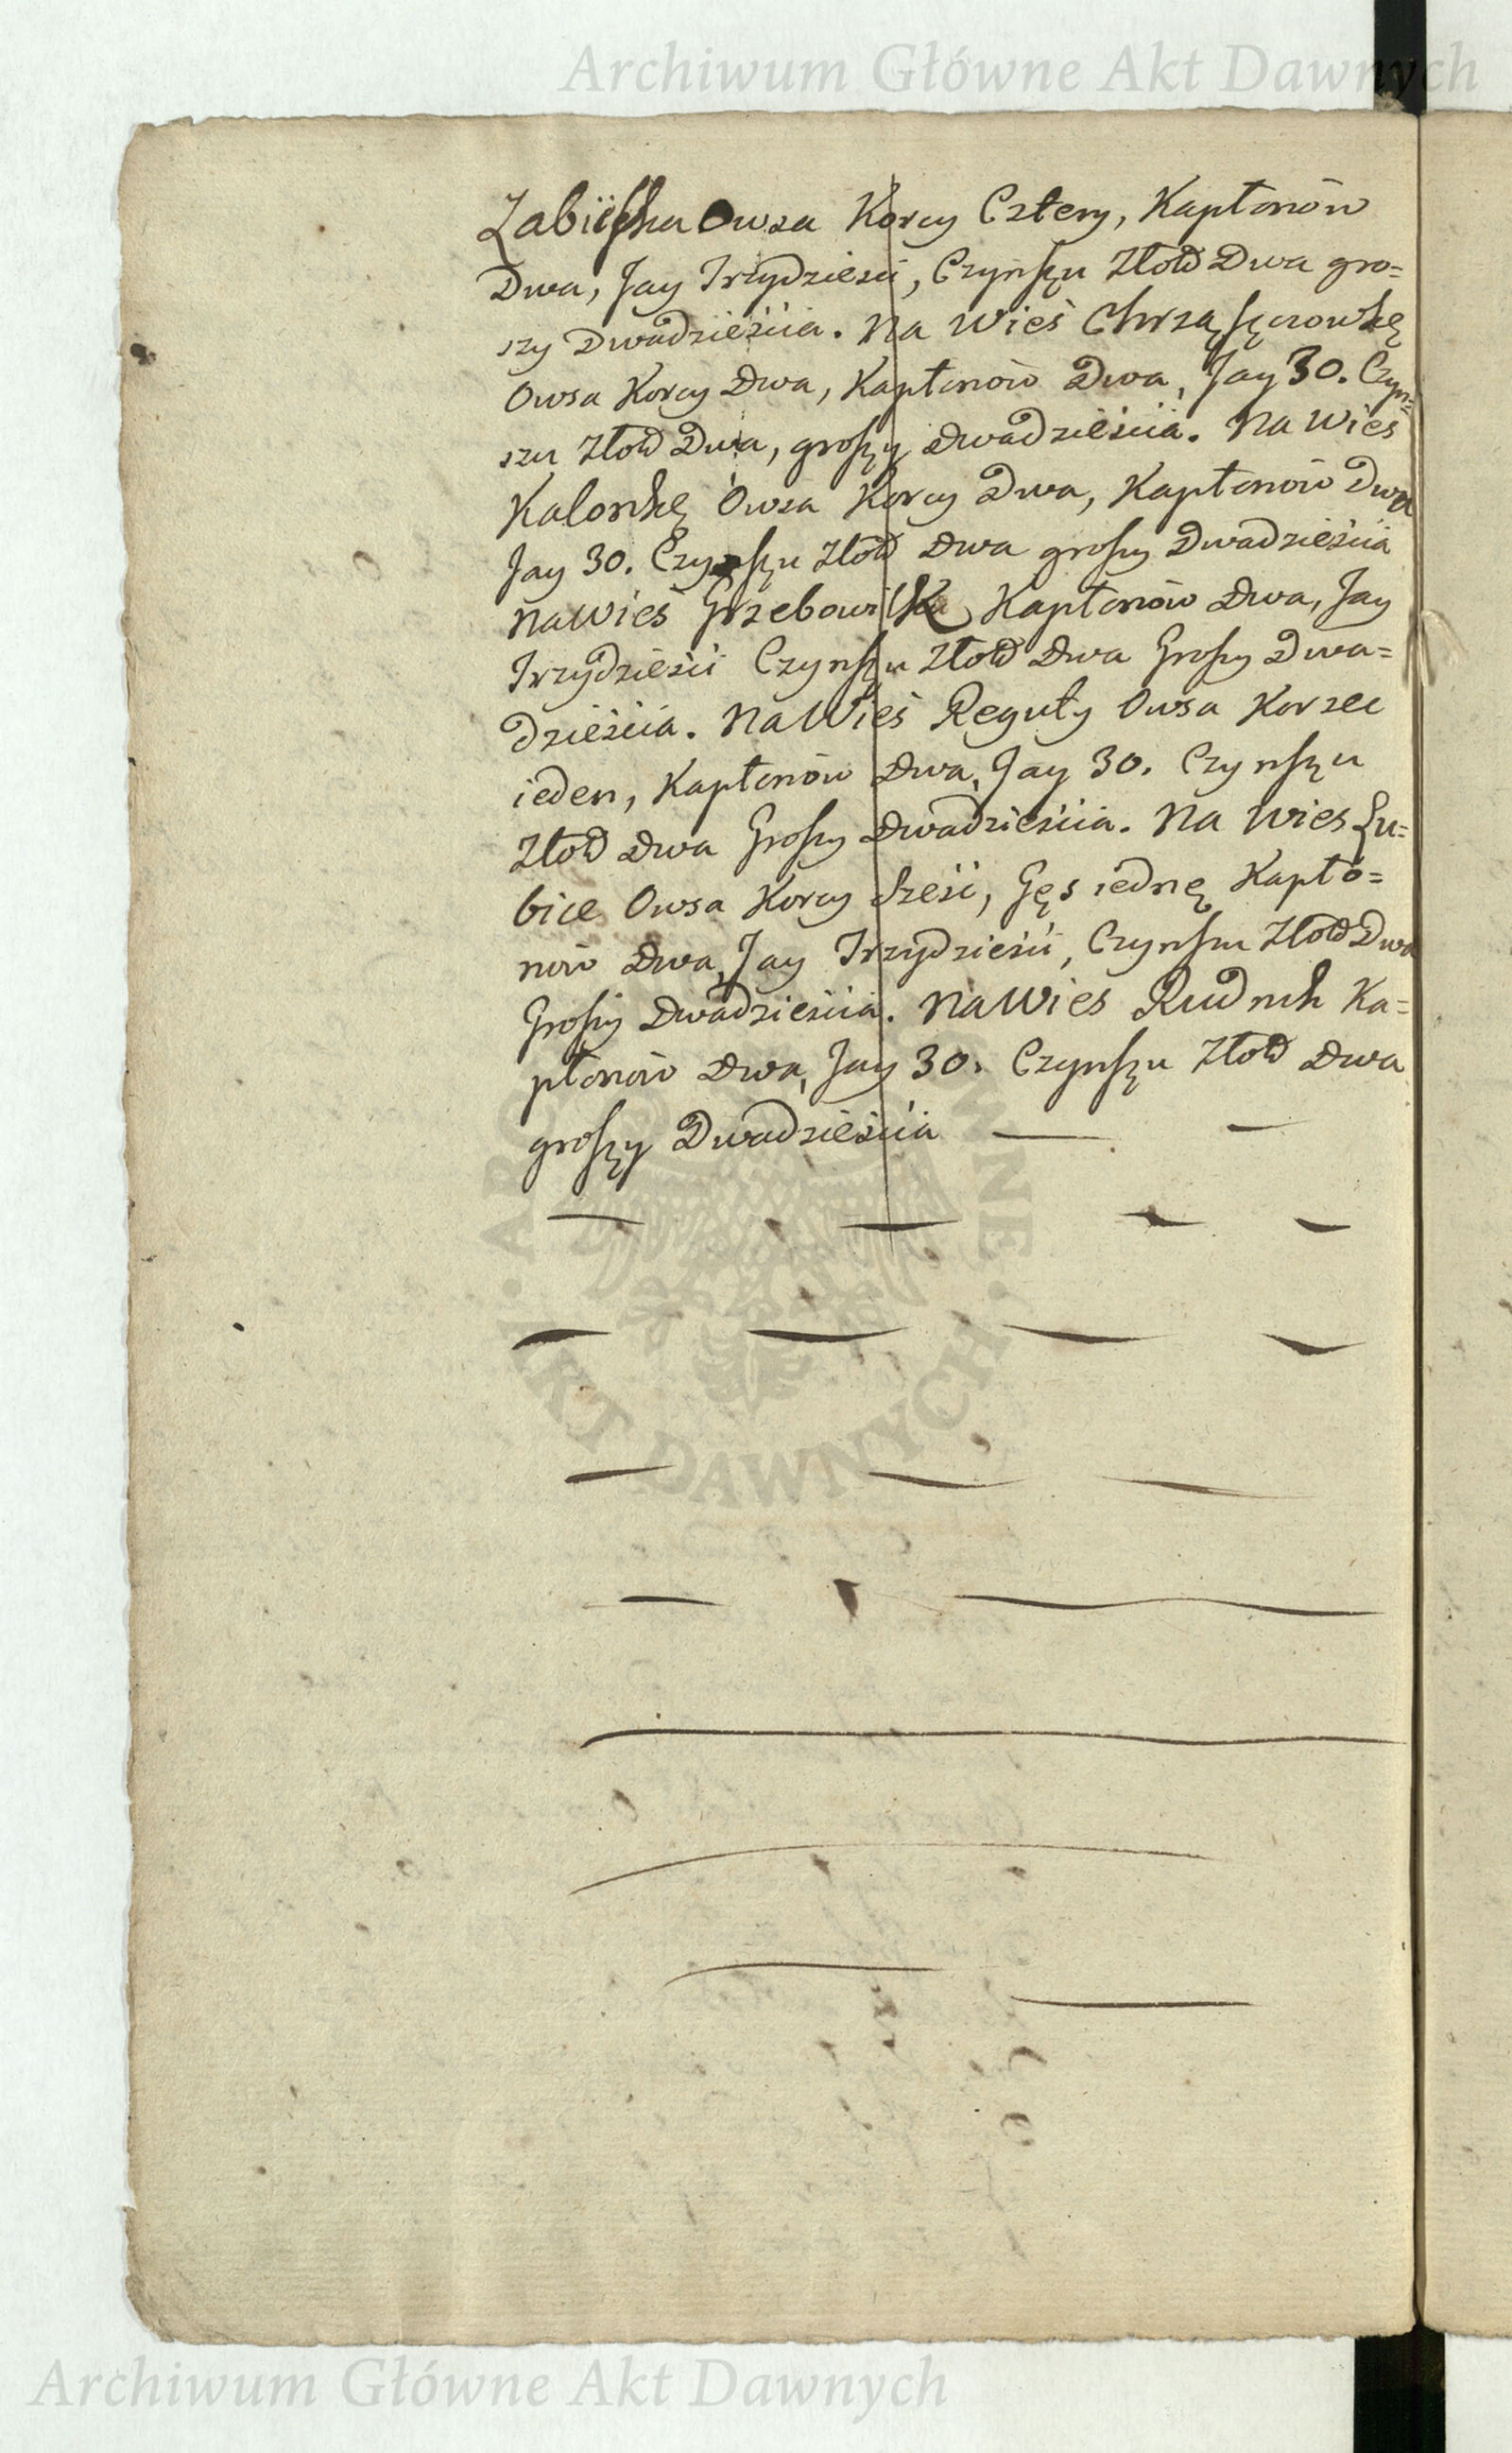 Archiwum Główne Akt Dawnych
Owsa Korcy Cztery, Kapłonów
Dwa, Jay Trzydzieści, Czynszu Złotd Dwa gro=
szy Dwadzieścia. Na Wieś Chrząszczowkę
Owsa Korcy Dwa, Kapłonów Dwa, Jay 30. Czyn=
szu Złotd Dwa, groszy Dwadzieścia. Na Wieś
Kalonkę Owsa Korcy Dwa, Kapłonów Dwa
Jay 30. Czynszu Złotd Dwa groszy Dwadzieścia
Na Wieś Grzebowilk Kapłonów Dwa, Jay
Trzydzieści Czynszu Złotd Dwa Groszy Dwa=
dzieścia. Na Wieś Reguły Owsa Korzec
ieden, Kapłonów Dwa, Jay 30. Czynszu
Złotd Dwa Groszy Dwadzieścia. Na Wies Lu=
bice Owsa Korcy Sześć, Gęs iednę Kapło=
nów Dwa, Jay Trzydzieści, Czynszu Złotd Dwa
Groszy Dwadzieścia. Na Wies Rudnik Ka=
płonów Dwa, Jay 30. Czynszu Złotd Dwa
groszy Dwadzieścia
AKT DAWNYCH
Archiwum Główne Akt Dawnych